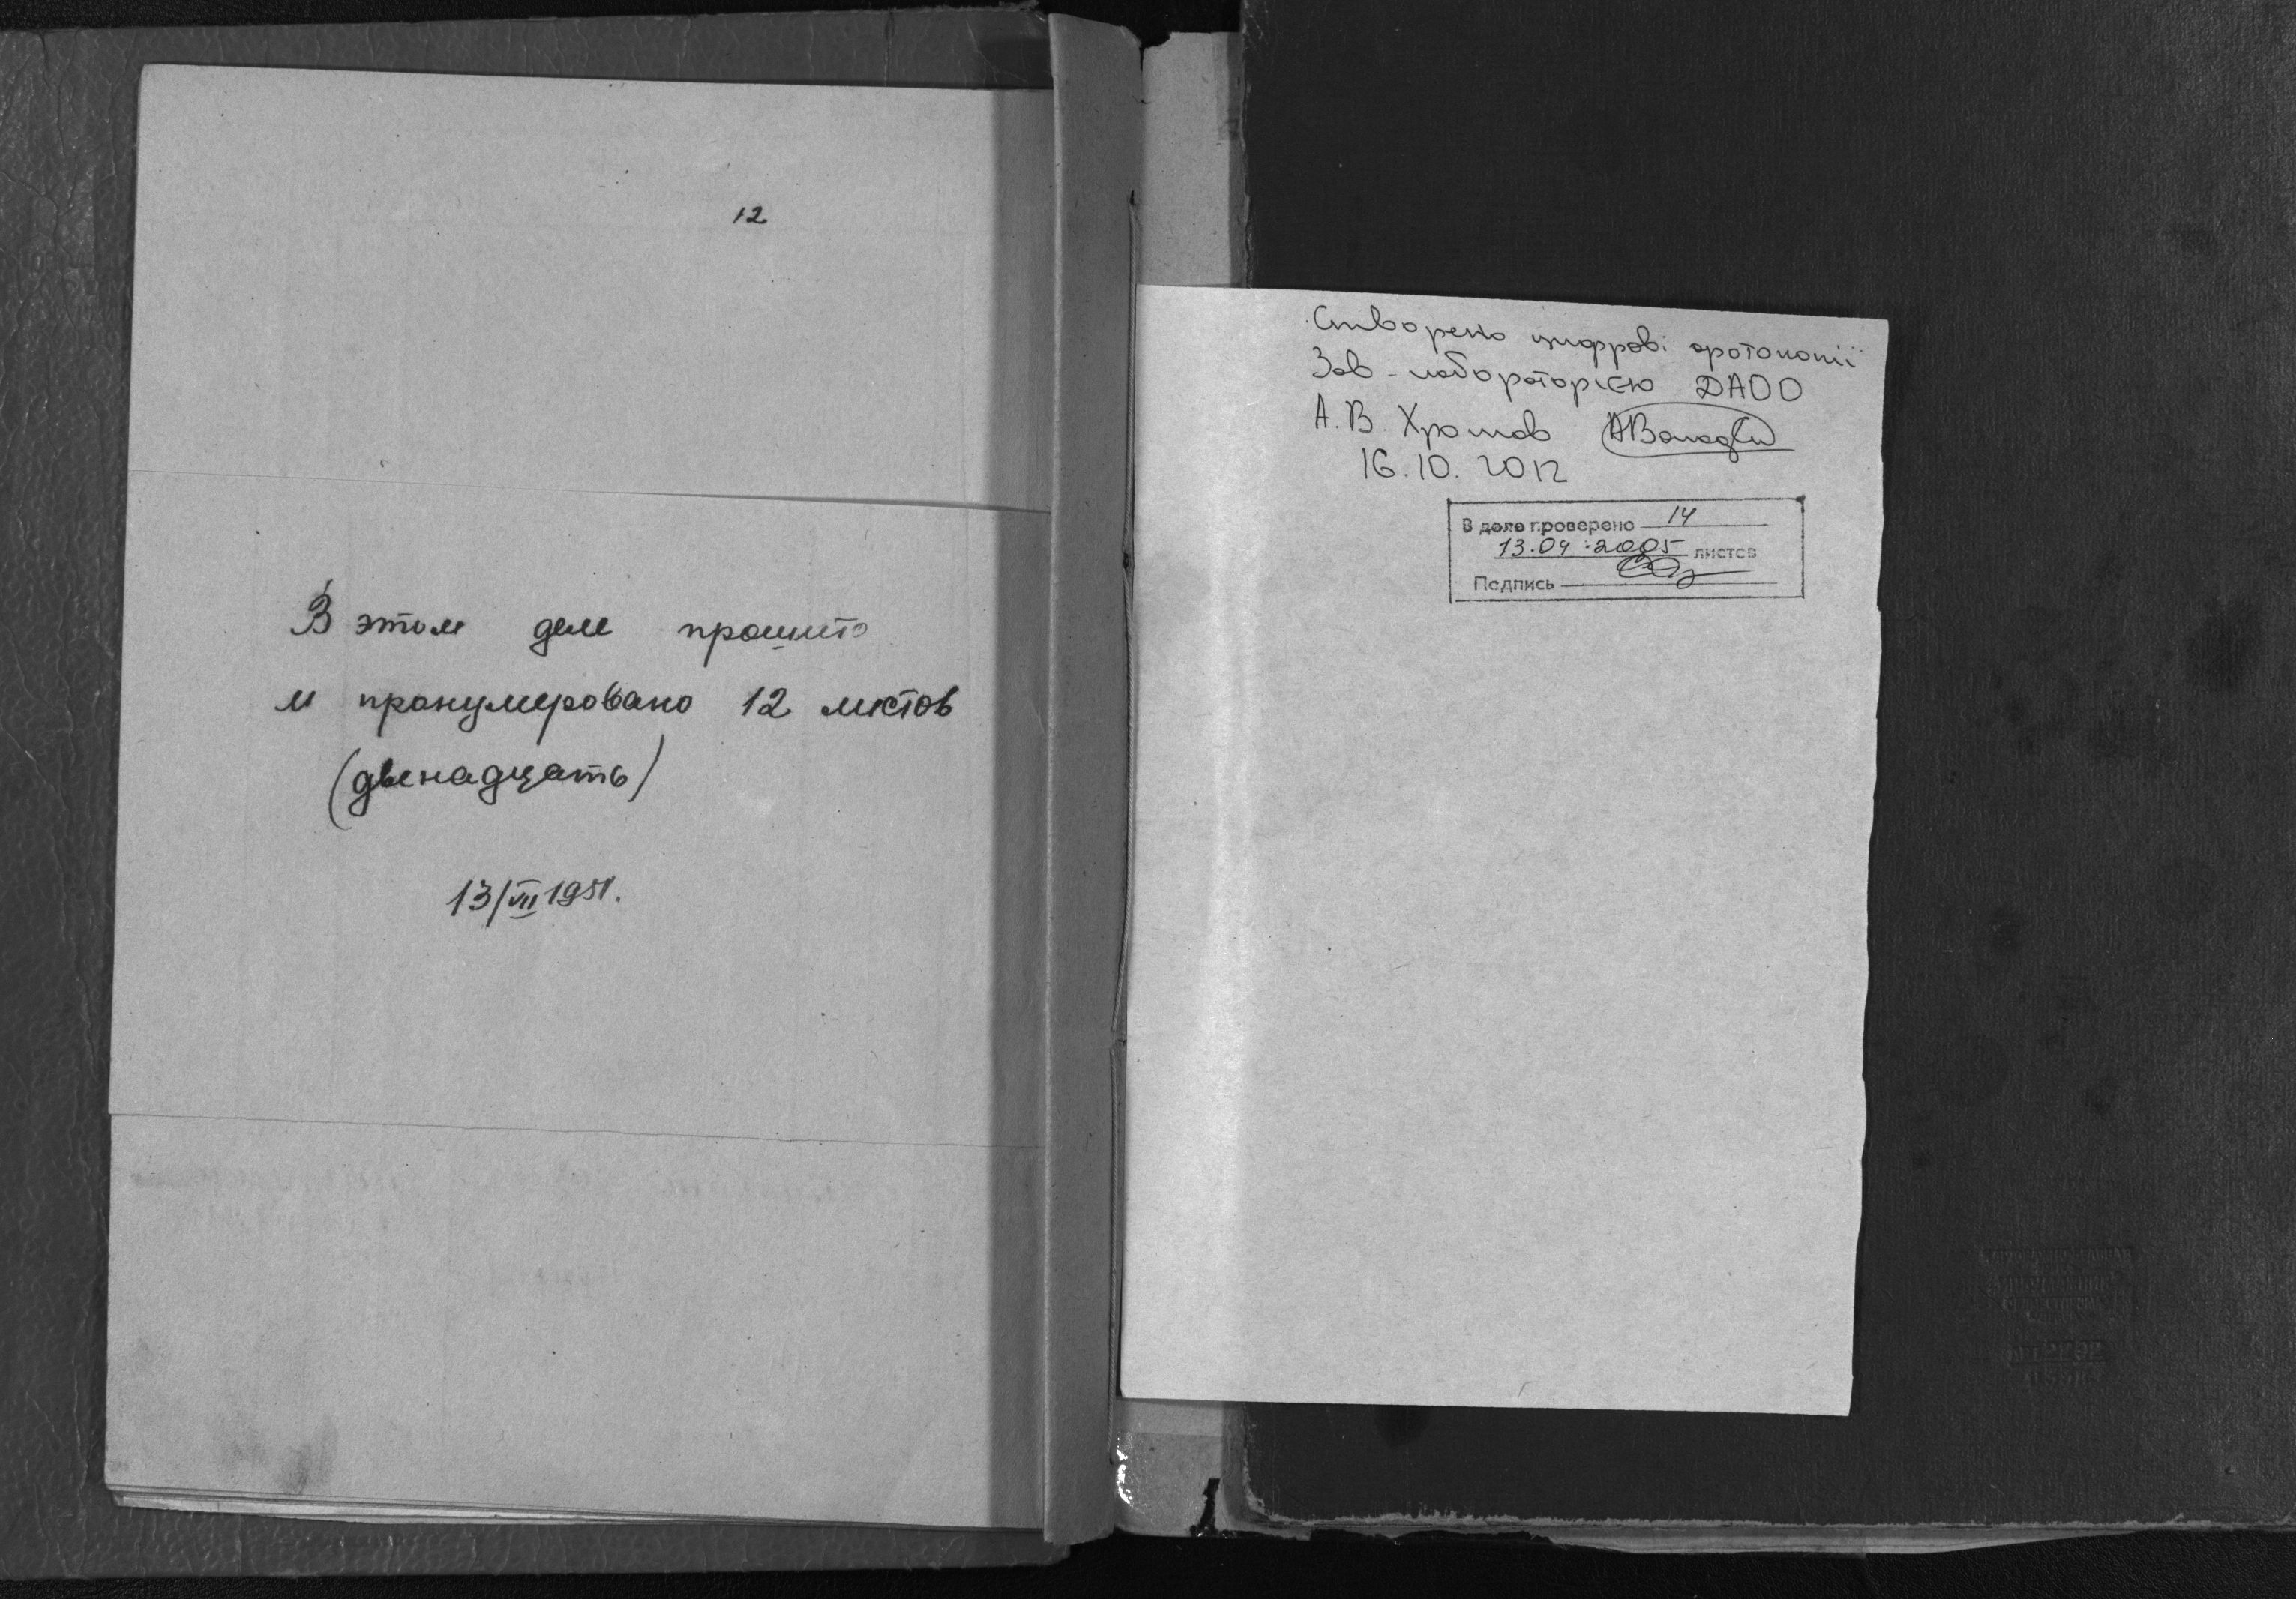 12
В этом деле прошито
и пронумеровано 12 листов
(двенадцать)
13/VII 1951.
Створено цифрові фотокопії
Зав. лабораторією ДАОО
А. В. Хромов
16.10.2012
В деле проверено 14
13.04.2005 листов
Подпись